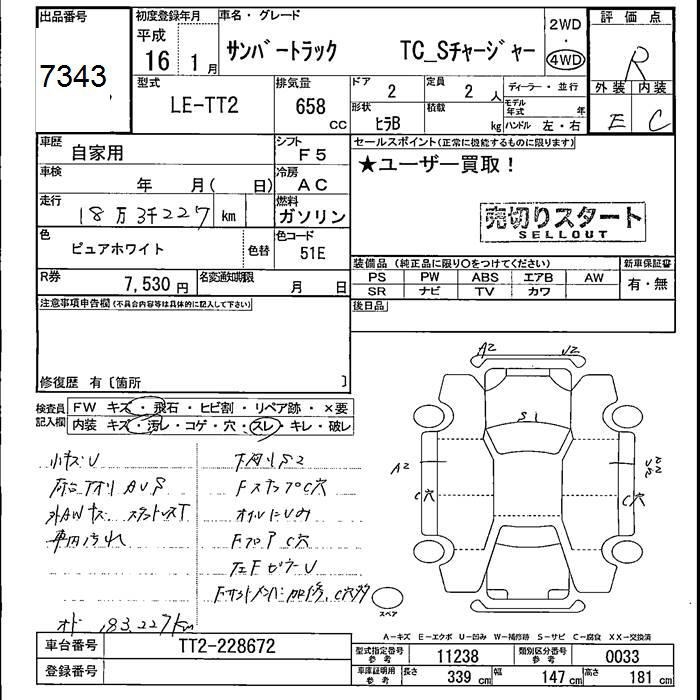 出品番号
7343
初度登録年月
平成
16 1月
車名・グレード
サンバートラック TC_Sチャージャー
2WD
・
4WD
評価点
R
外装 内装
E C
型式
LE-TT2
排気量
658 CC
ドア
2
定員
2 人
形状
ヒラB
積載
kg
ディーラー・並行
モデル年式 年
ハンドル 左・右
車歴
自家用
シフト
F5
車検
年 月( 日)
冷房
AC
走行
18万3千227 km
燃料
ガソリン
色
ピュアホワイト
色替
色コード
51E
R券
7,530 円
名変通知期限
月 日
セールスポイント(正常に機能するものに限ります)
★ユーザー買取!
売切りスタート
SELLOUT
装備品(純正品に限り○をつけてください)
PS PW ABS エアB AW
SR ナビ TV カワ
新車保証書
有・無
後日品
注意事項申告欄(不具合内容等は具体的に記入して下さい)
修復歴 有〔箇所 〕
検査員記入欄
FW キズ・飛石・ヒビ割・リペア跡・×要
内装 キズ・汚レ・コゲ・穴・スレ・キレ・破レ
小キズU
車内汚れ
下回りS2
C穴
オド 183.227km
A2
S1
A2
C穴
C穴
スペア
A-キズ E-エクボ U-凹み W-補修跡 S-サビ C-腐食 XX-交換済
車台番号
TT2-228672
登録番号
型式指定番号 参考
11238
類別区分番号 参考
0033
車庫証明用 参考
長さ 339 cm
幅 147 cm
高さ 181 cm